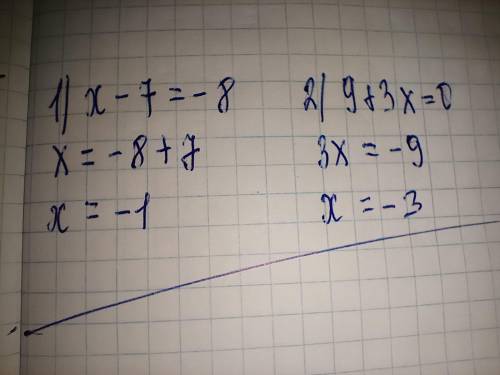 1) x - 7 = - 8
x = - 8 + 7
x = - 1
2) 9 + 3x = 0
3x = - 9
x = - 3